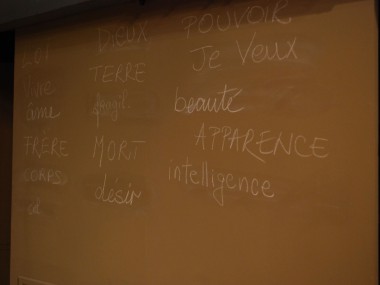 LOI
VIVE
âme
FRÈRE
CORPS
DIEUX
TERRE
fragil.
MORT
désir
POUVOIR
Je Veux
beauté
APPARENCE
intelligence